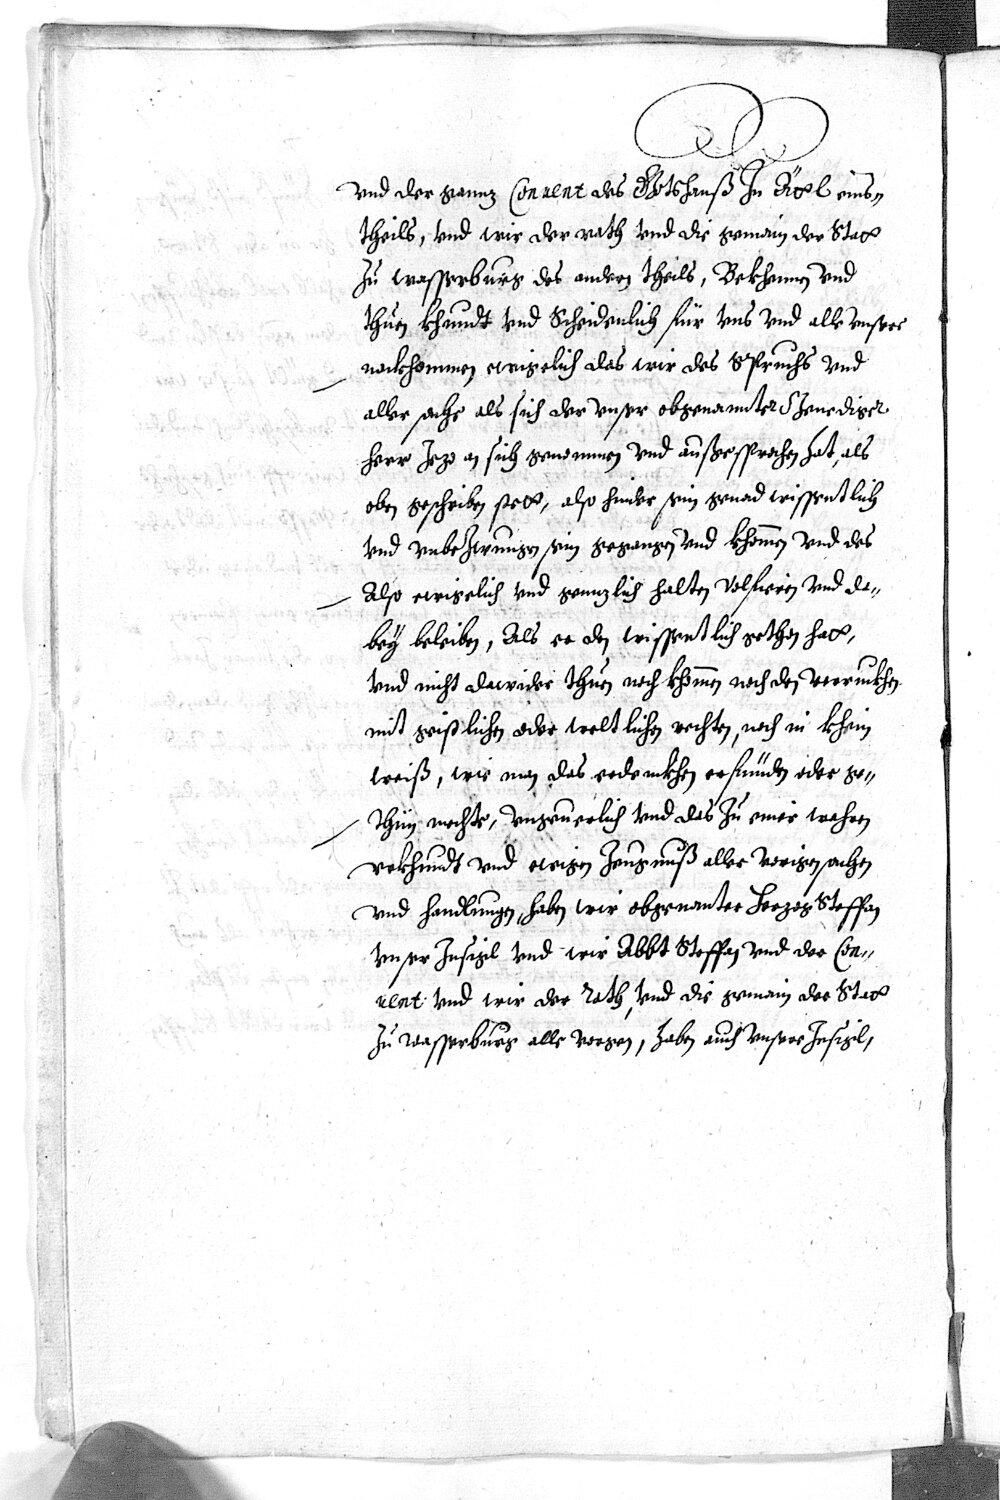 vnd der gannz Conuent des Gotshauß Zu Ätel eins„
theils, vnd wir der rath vnd die gemain der Statt
Zu wasserburg des andern theils, Bekhennen vnd
thuen khundt vnd Scheidenlich für vns vnd alle vnsere
nachkhommen ewigelich das wir des Spruchs vnd
aller sache als sich der vnser obgenannter Genediger
herr Jezo an sich genommen vnd außgesprochen hat, als
oben geschriben stett, also hinder sein genad wissentlich
vnd vnbezwungen sein gegangen vnd khommen vnd des
Also ewigelich vnd gennzlich halten volfieren vnd da„
bey beleiben, Als er den wissentlich gethon hatt,
vnd nicht dawider thuen noch khommen noch den verrukhen
mit geistlichen oder weltlichen rechten, noch in khein
weiß, wie man das erdenkhen erfünden oder ge„
thün mechte, vngeuerlich vnd das Zu einer wahren
vrkhundt vnd ewigen Zeugnuß aller vorigen sachen
vnd handlungen, haben wir obgenanter Herzog Steffan
vnser Insigl vnd wir Abbt Steffan vnd der Con„
uent vnd wir der Rath, vnd die gemain der Statt
Zu wasserburg alle vorgen, haben auch vnsere Insigel,